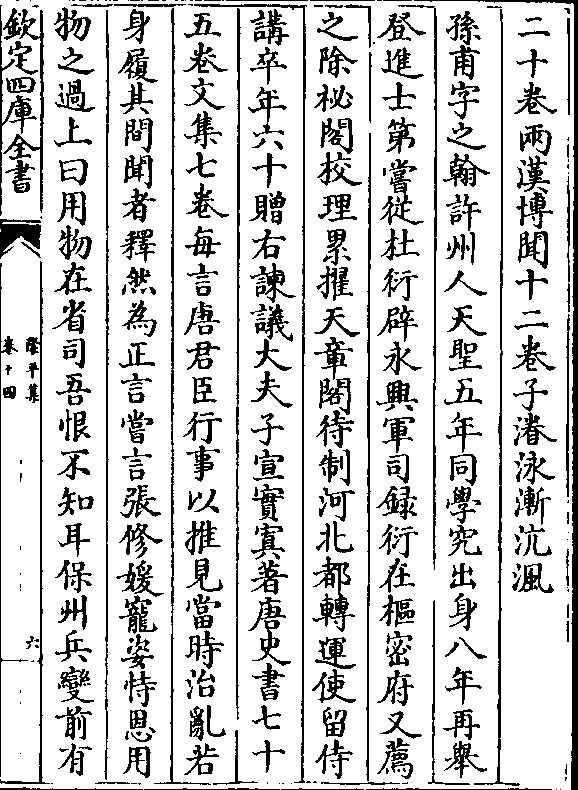 二十卷兩漢博聞十二卷子濬泳漸沆渢
孫甫字之翰許州人天聖五年同學究出身八年再舉
登進士第嘗從杜衍辟永興軍司録衍在樞密府又薦
之除祕閣校理累擢天章閣待制河北都轉運使留侍
講卒年六十贈右諫議大夫子宣實寘著唐史書七十
五卷文集七卷每言唐君臣行事以推見當時治亂若
身履其間聞者釋然為正言嘗言張修媛寵姿恃恩用
物之過上曰用物在省司吾恨不知耳保州兵變前有
欽定四庫全書
隆平集
卷十四
六